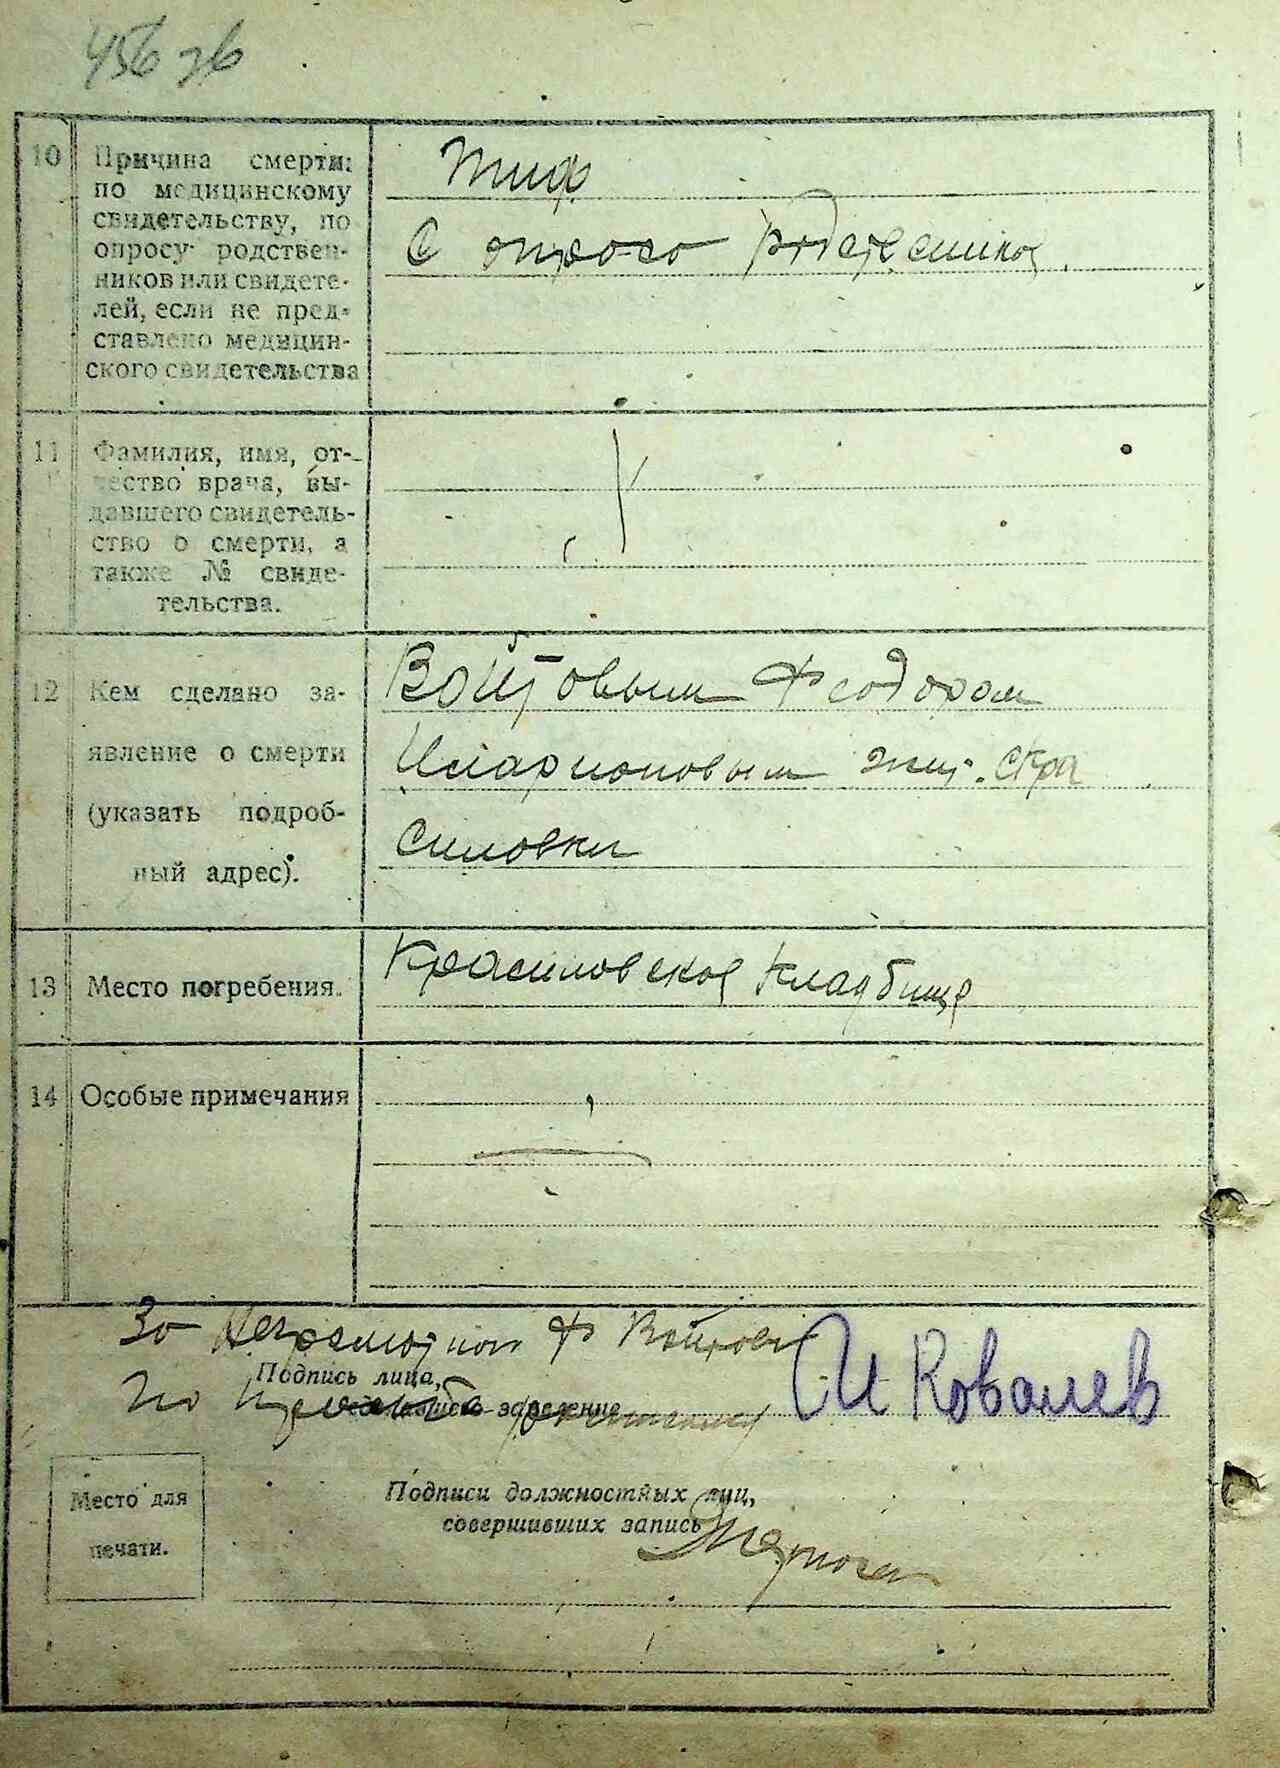 456 зв
10
Причина смерти:
по медицинскому
свидетельству, по
опросу родствен-
ников или свидете-
лей, если не пред-
ставлено медицин-
ского свидетельства
Тиф
С опросо родствеников
11
Фамилия, имя, от-
чество врача, вы-
давшего свидетель-
ство о смерти, а
также № свиде-
тельства.
12
Кем сделано за-
явление о смерти
(указать подроб-
ный адрес).
Войтовым Феодором
Иларионовым жит. с Кра
силовки
13
Место погребения.
Красиловское кладбище
14
Особые примечания
За Неграмотного Ф Войтова
Подпись лица,
по
заявление
И Ковалев
Место для
печати.
Подписи должностных лиц,
совершивших запись